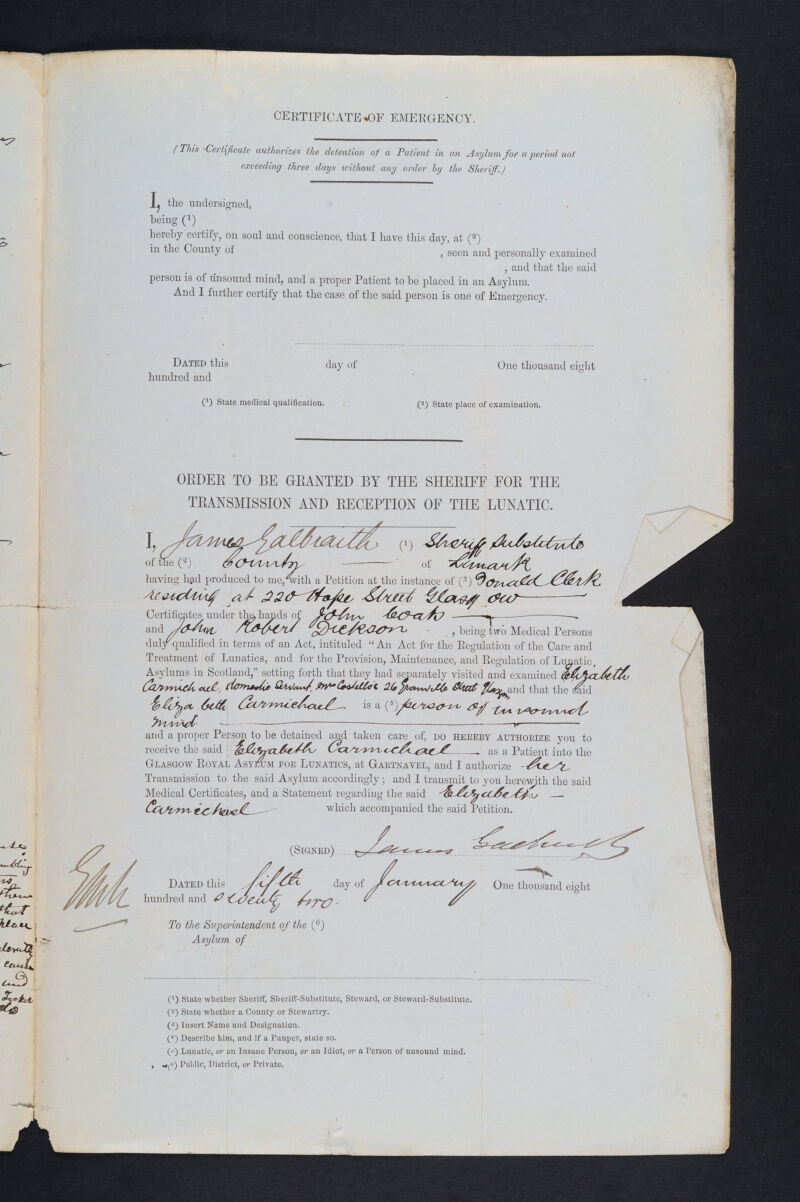 CERTIFICATE OF EMERGENCY.
(This Certificate authorizes the detention of a Patient in an Asylum for a period not
exceeding three days without any order by the Sheriff.)
I, the undersigned,
being (1)
hereby certify, on soul and conscience, that I have this day, at (2)
in the County of , seen and personally examined
, and that the said
person is of unsound mind, and a proper Patient to be placed in an Asylum.
And I further certify that the case of the said person is one of Emergency.
DATED this day of One thousand eight
hundred and
(1) State medical qualification. (2) State place of examination.
ORDER TO BE GRANTED BY THE SHERIFF FOR THE
TRANSMISSION AND RECEPTION OF THE LUNATIC.
I, James Galbraith (1) Sheriff Substitute
of the (2) County of Lanark
having had produced to me, with a Petition at the instance of (3) Donald Clerk
residing at 220 Hope Street Glasgow
Certificates under the hands of John Coats
and John Robert Dickson , being two Medical Persons
duly qualified in terms of an Act, intituled "An Act for the Regulation of the Care and
Treatment of Lunatics, and for the Provision, Maintenance, and Regulation of Lunatic
Asylums in Scotland," setting forth that they had separately visited and examined Elizabeth
Carmichael, domestic Servant, Mrs 26 Granville Street and that the said
Elizabeth Carmichael is a (5) person of unsound
mind
and a proper Person to be detained and taken care of, DO HEREBY AUTHORIZE you to
receive the said Elizabeth Carmichael as a Patient into the
GLASGOW ROYAL ASYLUM FOR LUNATICS, at GARTNAVEL, and I authorize her
Transmission to the said Asylum accordingly; and I transmit to you herewith the said
Medical Certificates, and a Statement regarding the said Elizabeth
Carmichael which accompanied the said Petition.
(SIGNED) James Galbraith
DATED this fifth day of January One thousand eight
hundred and seventy two.
To the Superintendent of the (6)
Asylum of
(1) State whether Sheriff, Sheriff-Substitute, Steward, or Steward-Substitute.
(2) State whether a County or Stewartry.
(3) Insert Name and Designation.
(4) Describe him, and if a Pauper, state so.
(5) Lunatic, or an Insane Person, or an Idiot, or a Person of unsound mind.
(6) Public, District, or Private.